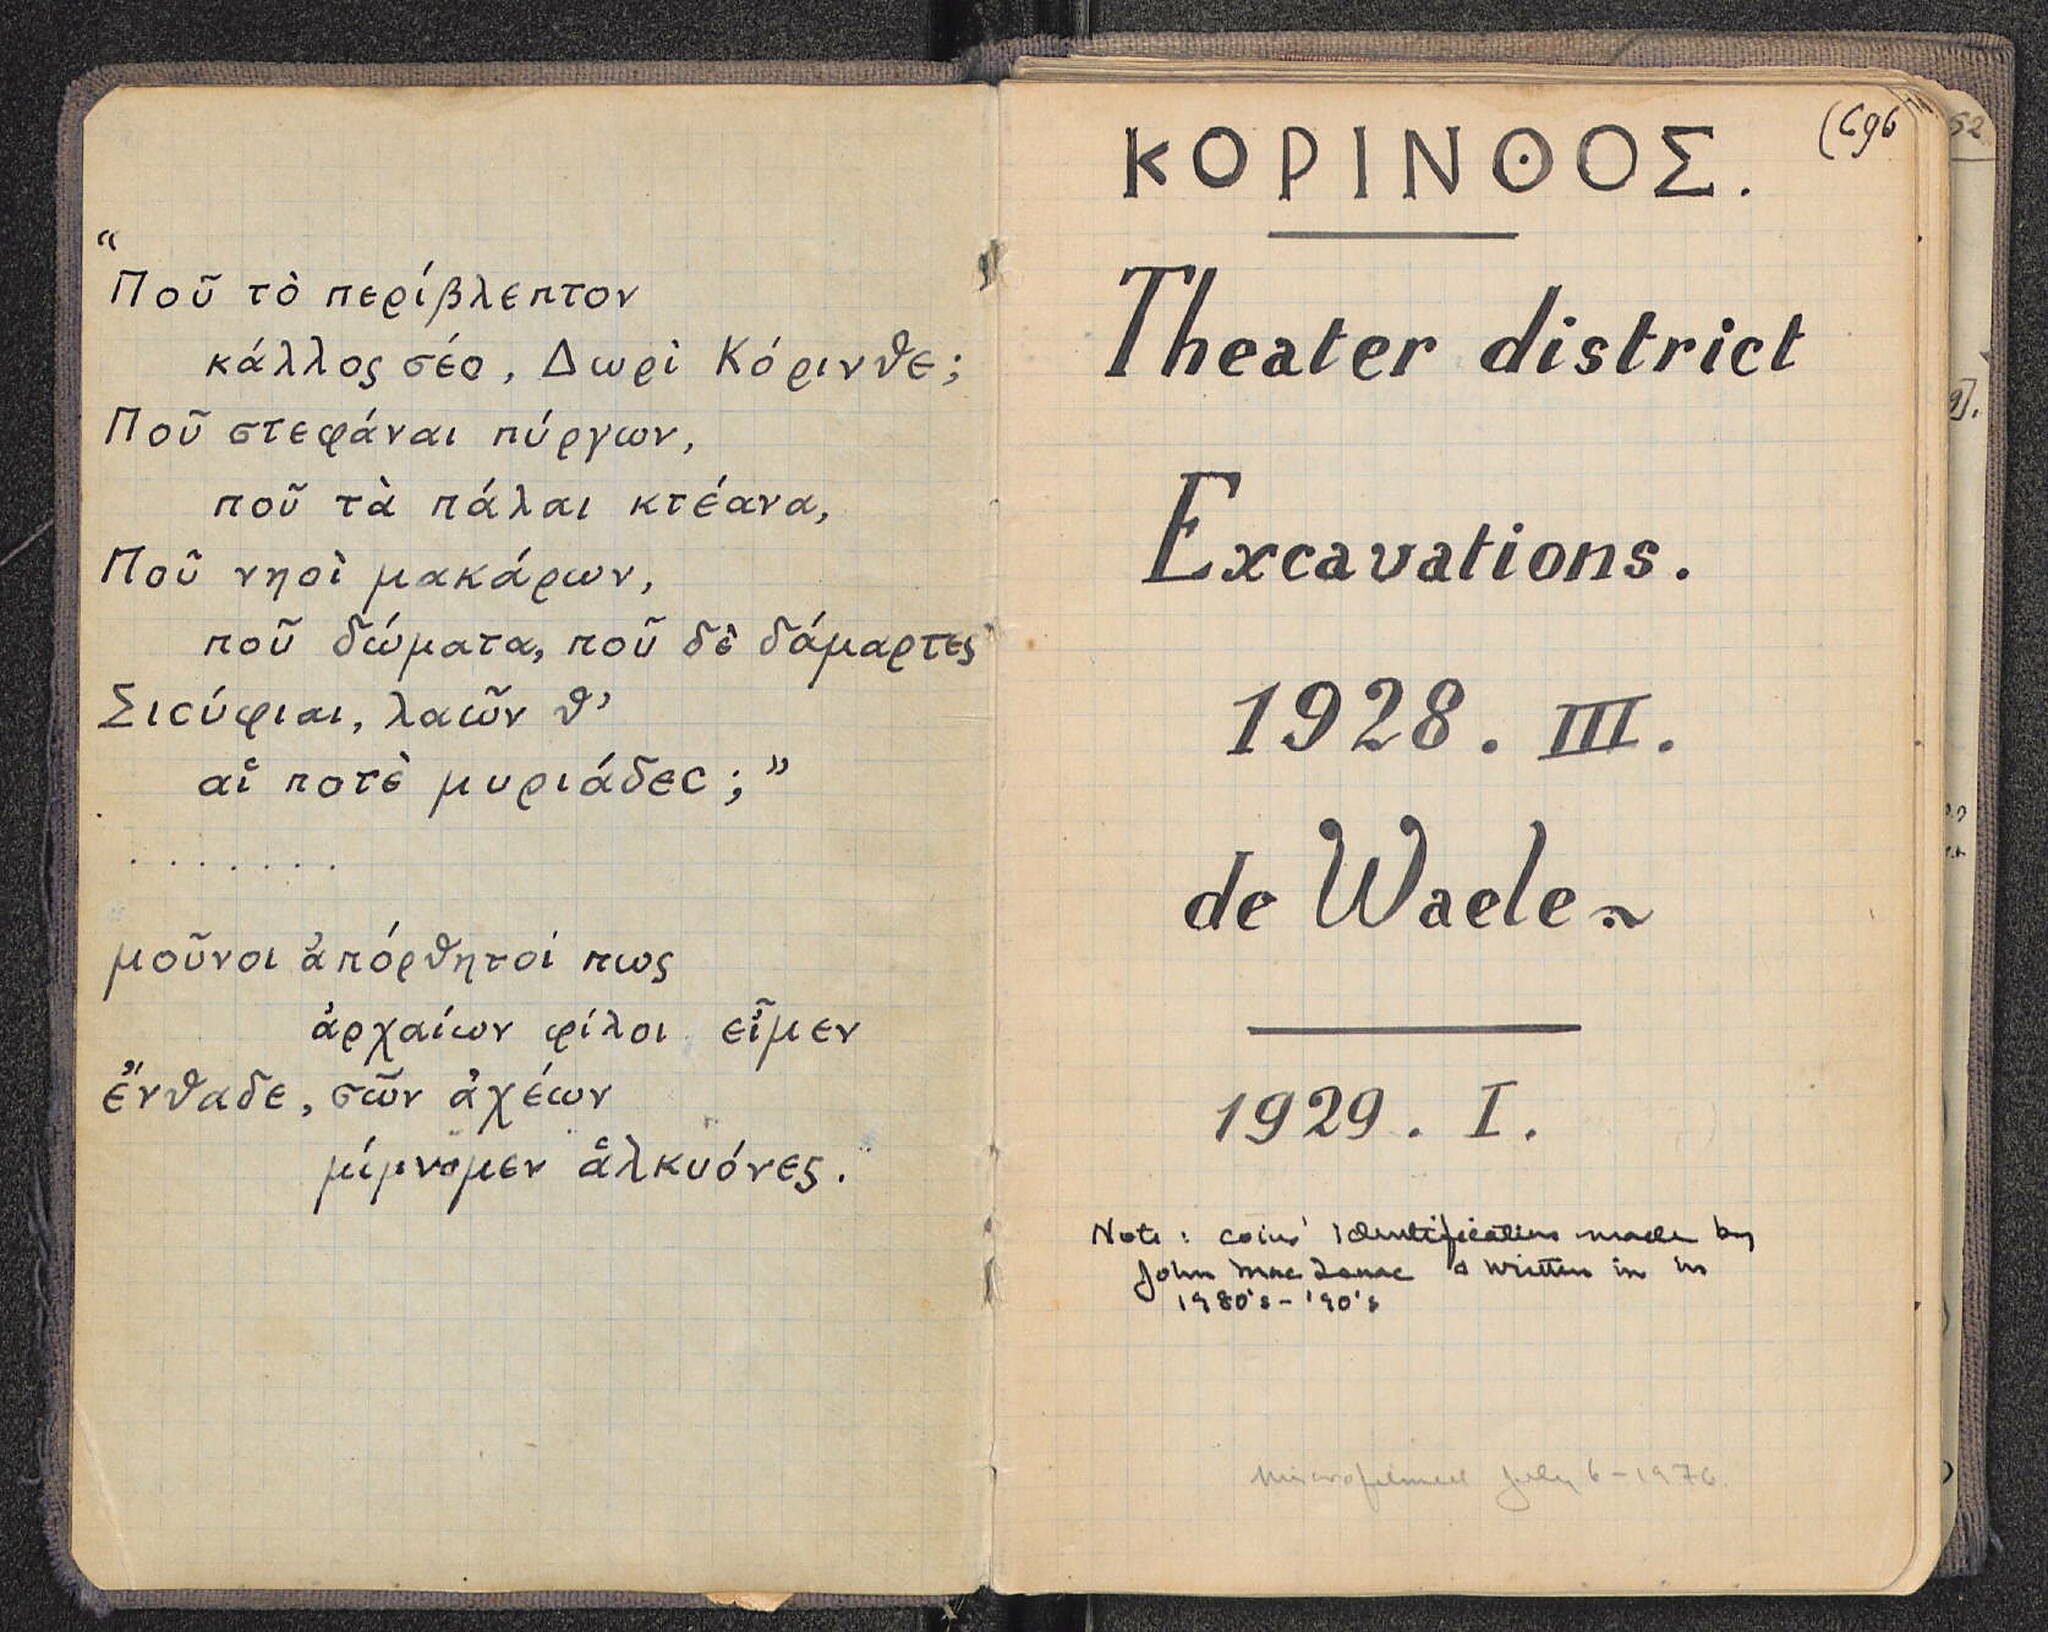 “
Ποῦ τὸ περίβλεπτον
κάλλος σέο, Δωρὶ Κόρινθε;
Ποῦ στεφάναι πύργων,
ποῦ τὰ πάλαι κτέανα,
Ποῦ νηοὶ μακάρων,
ποῦ δώματα, ποῦ δὲ δάμαρτες
Σισύφιαι, λαῶν θ’
αἵ ποτὲ μυριάδες;”
. . . . . . . .
μοῦνοι ἀπόρθητοί πως
ἀρχαίων φίλοι εἶμεν
ἔνθαδε, σῶν ἀχέων
μίμνομεν ἁλκυόνες.
(696
ΚΟΡΙΝΘΟΣ.
Theater district
Excavations.
1928. III.
de Waele
1929. I.
Note: coins' identifications made by
John Mac Isaac & written in in
1980's-'90's
Microfilmed July 6-1976.
52